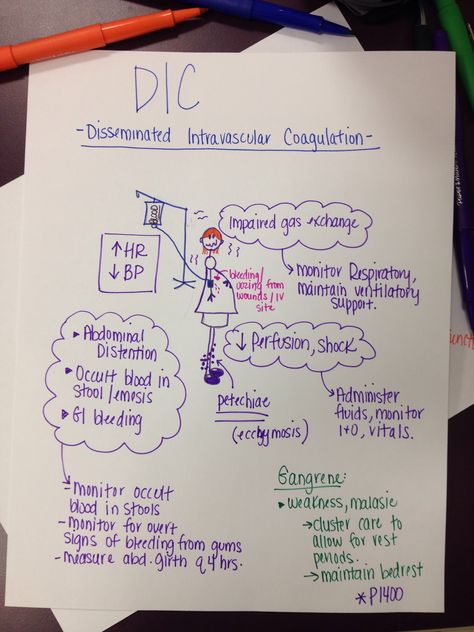 DIC
- Disseminated Intravascular Coagulation -
BLOOD
Impaired gas exchange
↑ HR
↓ BP
bleeding/
oozing from
wounds/IV
site
→ monitor Respiratory,
maintain ventilatory
support.
▸ Abdominal
Distention
▸ Occult blood in
stool/emosis
▸ GI bleeding
↓ Perfusion, shock
petechiae
(ecchymosis)
→ Administer
fluids, monitor
I+O, vitals.
- monitor occult
blood in stools
- monitor for overt
signs of bleeding from gums
- measure abd. girth q 4 hrs.
Gangrene:
▸ weakness, malasie
→ cluster care to
allow for rest
periods.
→ maintain bedrest
* P1400